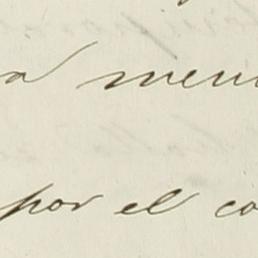 a men
por el co